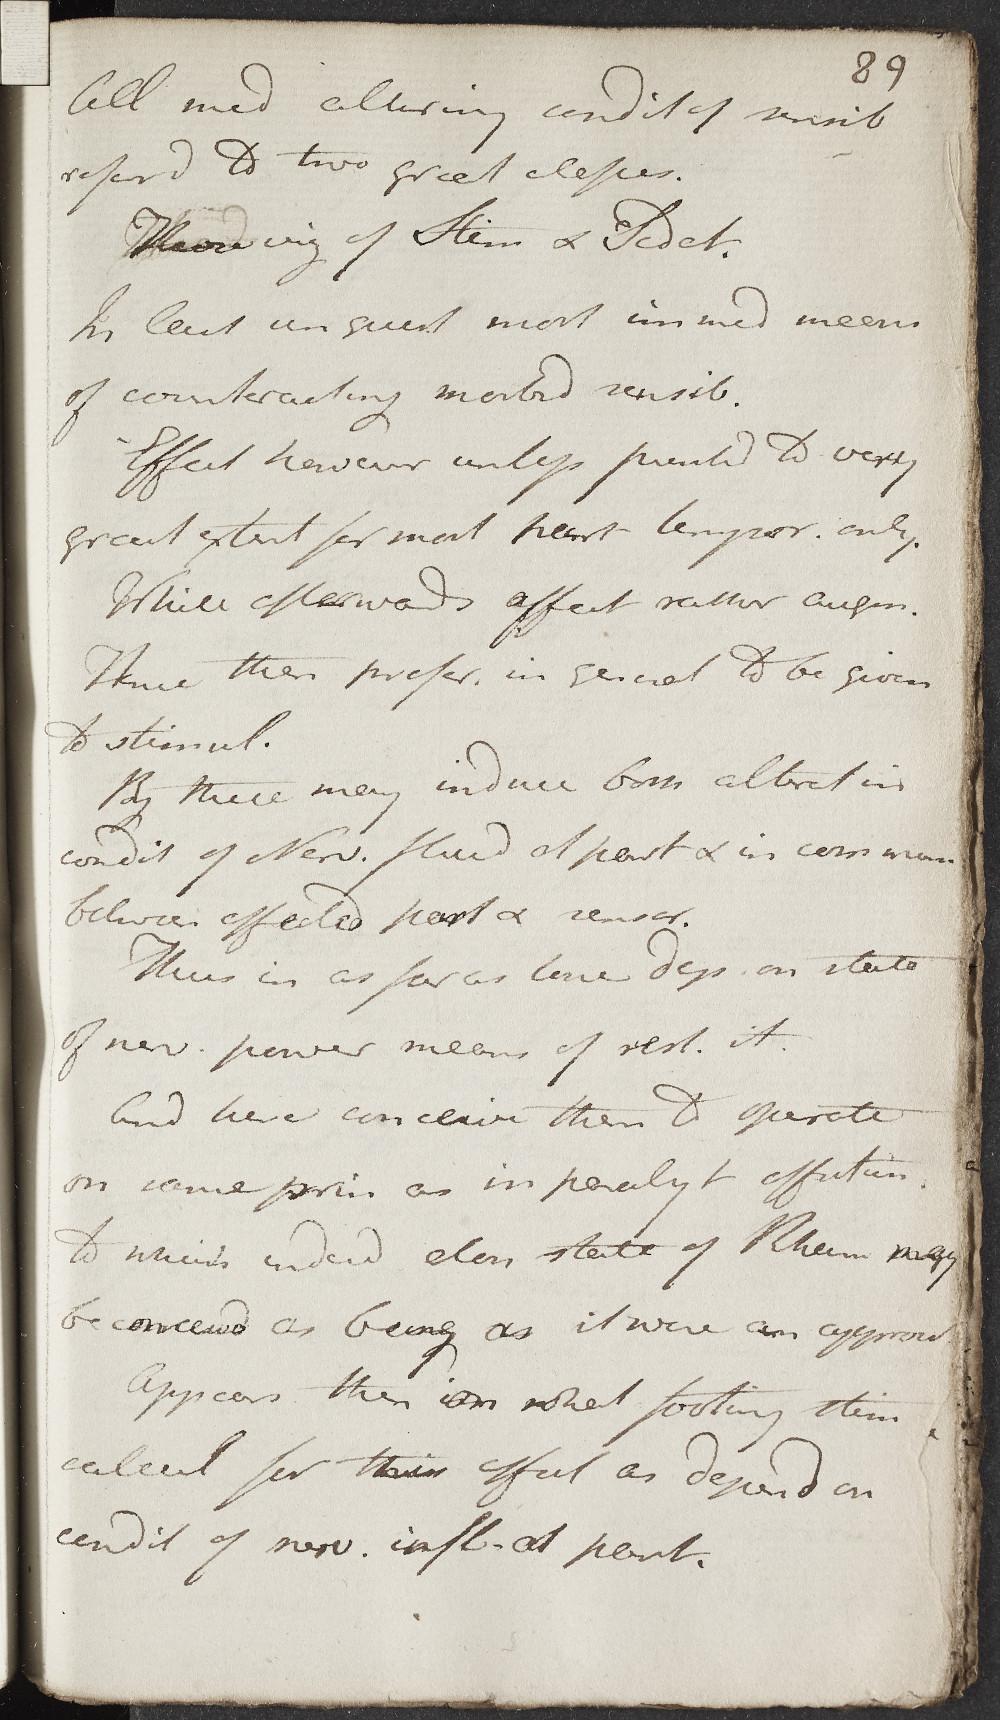 89
All med altering condit of sensib
referd to two great classes.
of Stim & Sedat.
In last unquest most immed means
of counteracting morbid sensib.
Effect however unless pushd to very
great extent for most part tempor. only.
While afterwards affect rather augm.
Hence then prefer. in general to be given
to stimul.
By these may induce both alterat in
condit of Nerv. fluid at part & in commun
between affected part & sensor.
Thus in as far as tone dep. on state
of nerv. power means of rest. it.
And here conceive them to operate
on same prin as in paralyt affection.
to which indeed state of Rheum may
be conceivd as being as it were an approach
Appears then on what footing stim
calcul for this effect as depend on
condit of nerv. infl. at part.